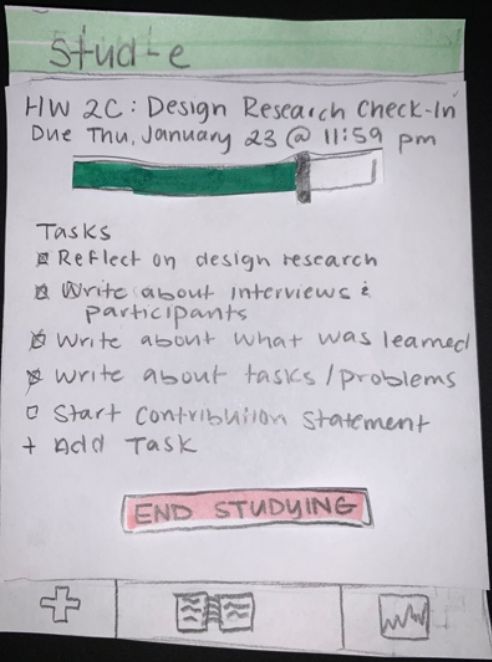 Stud-e
HW 2C: Design Research Check-In
Due Thu, January 23 @ 11:59 pm
Tasks
Reflect on design research
Write about interviews &
participants
Write about what was learned
Write about tasks/problems
Start Contribution Statement
+ Add Task
END STUDYING